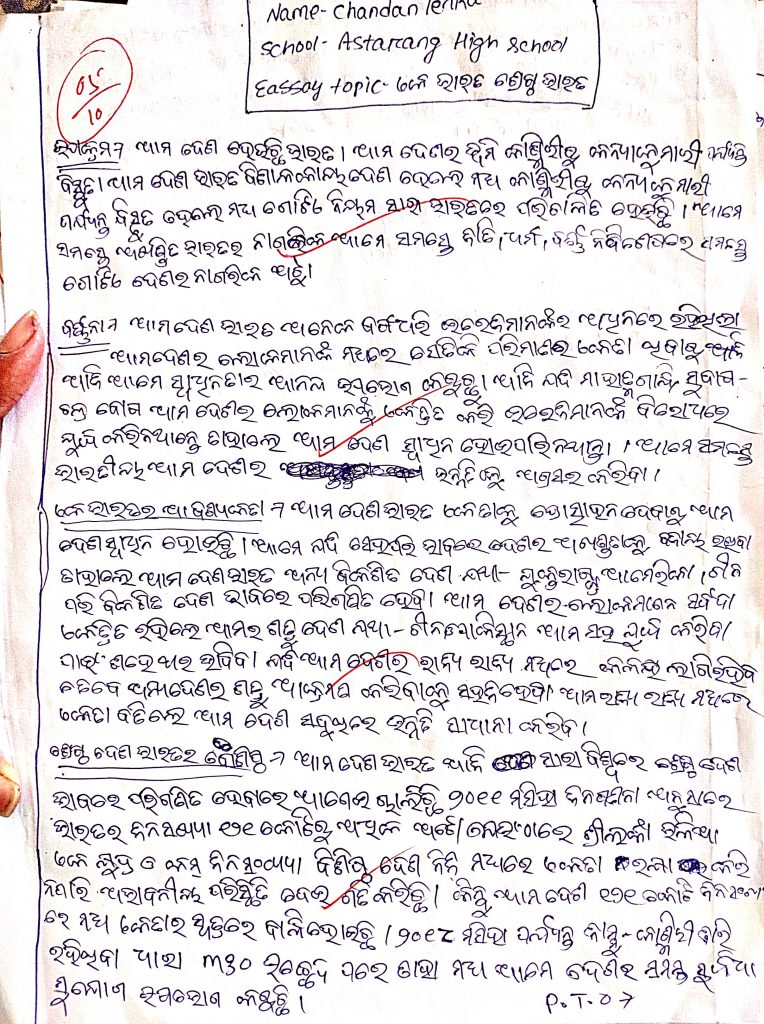 Name- Chandan
School- Astarang High School
Eassay topic- ଏକ ଭାରତ ଶ୍ରେଷ୍ଠ ଭାରତ
05/10
ଉପକ୍ରମ → ଆମ ଦେଶ ହେଉଛି ଭାରତ। ଆମ ଦେଶର ଭୂମି କାଶ୍ମିରୀରୁ କନ୍ୟାକୁମାରୀ ପର୍ଯ୍ୟନ୍ତ
ବିସ୍ତୃତ। ଆମ ଦେଶ ଭାରତ ବିଶାଳକାୟ ଦେଶ ହେଲେ ମଧ୍ୟ କାଶ୍ମିରୀରୁ କନ୍ୟାକୁମାରୀ
ପର୍ଯ୍ୟନ୍ତ ବିସ୍ତୃତ ହେଲେ ମଧ୍ୟ ଗୋଟିଏ ନିୟମ ସାରା ଭାରତରେ ପରିଚାଳିତ ହେଉଛି। ଆମେ
ସମସ୍ତେ ଅଖଣ୍ଡିତ ଭାରତର ନାଗରିକ ଆମେ ସମସ୍ତେ ଜାତି, ଧର୍ମ, ବର୍ଣ୍ଣ ନିର୍ବିଶେଷରେ ସମସ୍ତେ
ଗୋଟିଏ ଦେଶର ନାଗରିକ ଅଟୁ।
ବର୍ଣ୍ଣନା → ଆମ ଦେଶ ଭାରତ ଅନେକ ବର୍ଷ ଧରି ଇଂରେଜମାନଙ୍କର ଅଧିନରେ ରହିଥିଲା
ଆମ ଦେଶର ଲୋକମାନଙ୍କ ମଧ୍ୟରେ ସେତିକି ପରିମାଣର ଏକତା ଥିବାରୁ ଆଜି
ଆଦି ଆମେ ସ୍ୱାଧିନତାର ଆନନ୍ଦ ଉପଭୋଗ କରୁଛୁ। ଆଦି ଯଦି ମାହାତ୍ମାଗାନ୍ଧି ସୁବାଷ-
ଚନ୍ଦ୍ର ବୋଷ ଆମ ଦେଶର ଲୋକମାନଙ୍କୁ ଏକତ୍ରିତ କରି ଇଂରେଜମାନଙ୍କ ବିରୋଧରେ
ଯୁଦ୍ଧ କରିନଥାନ୍ତେ ତାହାଲେ ଆମ ଦେଶ ସ୍ୱାଧିନ ହୋଇପାରିନଥାନ୍ତା। ଆମେ ସମସ୍ତେ
ଭାରତୀୟ ଆମ ଦେଶର ଉନ୍ନତିକୁ ଅଗ୍ରସର କରିବା।
ଏକ ଭାରତର ଆବଶ୍ୟକତା → ଆମ ଦେଶ ଭାରତ ଏକତାକୁ ପ୍ରୋତ୍ସାହନ ଦେବାରୁ ଆମ
ଦେଶ ସ୍ୱାଧିନ ହୋଇଛି। ଆମେ ଯଦି ସେହିପରି ଭାବରେ ଦେଶର ଅଖଣ୍ଡତାକୁ ବଜାୟ ରଖିବା
ତାହାଲେ ଆମ ଦେଶ ଭାରତ ଅନ୍ୟ ବିକଶିତ ଦେଶ ଯଥା- ଯୁକ୍ତରାଷ୍ଟ୍ର ଆମେରିକା, ଚୀନ
ପରି ବିକଶିତ ଦେଶ ଭାବରେ ପରିଗଣିତ ହେବ। ଆମ ଦେଶର ଲୋକମାନେ ସର୍ବଦା
ଏକତ୍ରିତ ରହିଲେ ଆମର ଶତ୍ରୁ ଦେଶ ଯଥା- ଚୀନ, ପାକିସ୍ଥାନ ଆମ ସହ ଯୁଦ୍ଧ କରିବା
ପାଇଁ ଶହେ ଥର ଭାବିବ। ଯଦି ଆମ ଦେଶର ରାଜ୍ୟ ରାଜ୍ୟ ମଧ୍ୟରେ କଳିହ ଲାଗିରହିବ
ତେବେ ଆମ ଦେଶର ଶତ୍ରୁ ଆକ୍ରମଣ କରିବାକୁ ସହଜ ହେବ। ଆମ ରାଜ୍ୟ ରାଜ୍ୟ ମଧ୍ୟରେ
ଏକତା ବଢିଲେ ଆମ ଦେଶ ଉନ୍ନତି ସାଧନା କରିବ।
ଶ୍ରେଷ୍ଠ ଦେଶ ଭାରତର ବୈଶିଷ୍ଟ → ଆମ ଦେଶ ଭାରତ ଆଜି ସାରା ବିଶ୍ୱରେ ଶ୍ରେଷ୍ଠ ଦେଶ
ଭାବରେ ପରିଗଣିତ ହେବାରେ ଆଗେଇ ଚାଲିଛି ୨୦୧୧ ମସିହା ଜନଗଣନା ଅନୁସାରେ
ଭାରତର ଜନସଂଖ୍ୟା ୧୨୧ କୋଟିରୁ ଅଧିକ ଅଟେ। ଶ୍ରୀଲଙ୍କା ଭଳିଆ
ଏକ କ୍ଷୁଦ୍ର ଓ କମ ଜନସଂଖ୍ୟା ବିଶିଷ୍ଟ ଦେଶ ନିଜ ମଧ୍ୟରେ ଏକତା ରକ୍ଷା କରି
ନପାରି ଅଭାବନୀୟ ପରିସ୍ଥିତି ଦେଇ ଗତି କରିଛି। କିନ୍ତୁ ଆମ ଦେଶ ୧୨୧ କୋଟି ଜନସଂଖ୍ୟା
ରେ ମଧ୍ୟ ଏକତାର ସୂତ୍ରରେ ବାନ୍ଧିହୋଇଛି। ୨୦୧୮ ମସିହା ପର୍ଯ୍ୟନ୍ତ ଜାମ୍ମୁ-କାଶ୍ମିରୀ
ରହିଥିବା ଧାରା ୩୭୦ ଉଚ୍ଛେଦ ପରେ ତାହା ମଧ୍ୟ ଆମେ ଦେଶର ସମସ୍ତ ସୁବିଧା
ସୁଯୋଗ ଉପଭୋଗ କରୁଛି।
P.T.O →